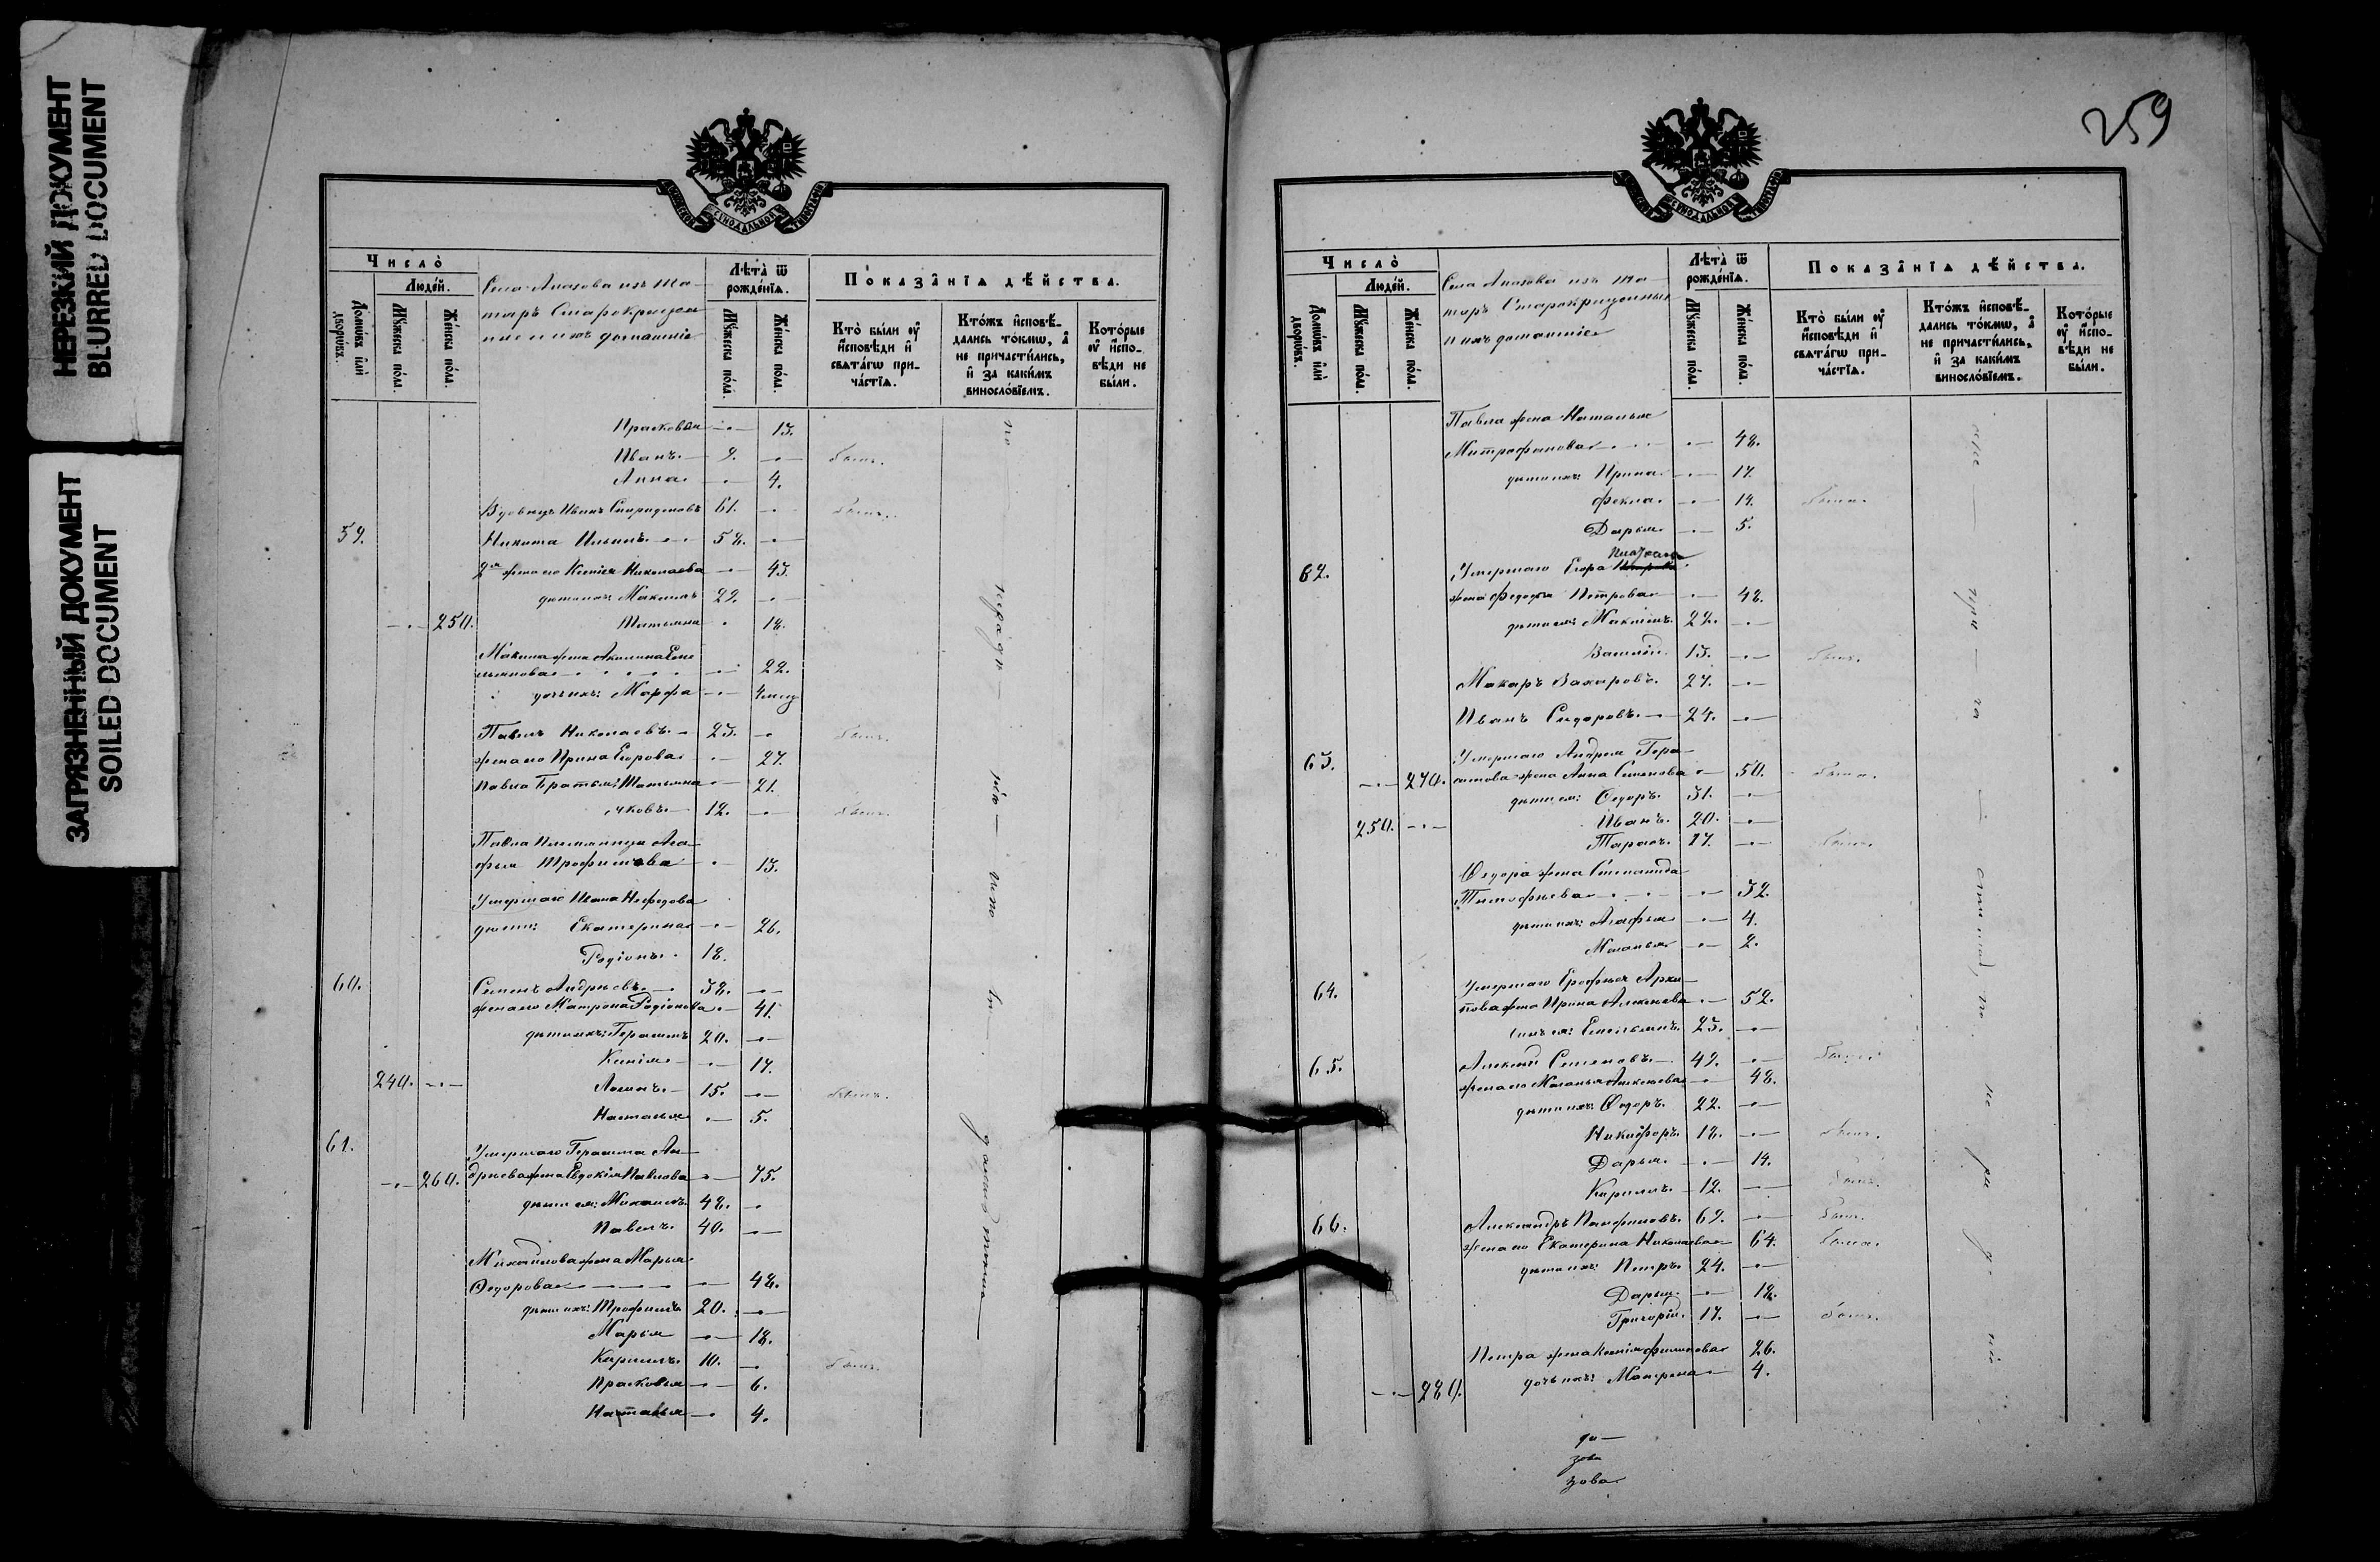 НЕРЕЗКИЙ ДОКУМЕНТ
BLURRED DOCUMENT
ЗАГРЯЗНЕННЫЙ ДОКУМЕНТ
SOILED DOCUMENT
Число̀
Людей.
Домѡвъ и҆лѝ дворѡвъ.
Мꙋжеска пола.
Женска пола.
Села Апазова изъ та-
таръ Старокрещен
ные и ихъ домашніе
Лѣта̀ ѿ рожденїѧ.
Мꙋжеска пола.
Женска пола.
Показанїѧ дѣйства.
Кто̀ были ᲂу҆ и҆сповѣди и҆ свѧтагѡ причастїѧ.
Ктожъ и҆сповѣдались токмѡ, а҆ не причастились, и҆ за какимъ винословїемъ.
Которые ᲂу҆ и҆сповѣди не были.
Прасковья 13.
Иванъ. 9. былъ.
Анна. 4.
Вдовецъ Иванъ Спиридоновъ 61. былъ.
59. Никита Ильинъ 58.
2я жена его Ксенія Николаева 43.
дѣти ихъ: Максимъ 22.
250. Татьяна 18.
Максима жена Акилина Еме
льянова 22.
дочь ихъ: Марфа
Павелъ Николаевъ. 23. былъ.
жена его Ирина Егорова 27.
Павла братья: Татьяна 21.
Яковъ. 12. былъ.
Павла племянница Ага-
фья Трофимова 13.
Умершаго Ивана Нефедова
дѣти: Екатерина 26.
Родіонъ. 18.
60. Семенъ Андреевъ. 38.
жена его Матрона Родіонова 41.
дѣти ихъ: Герасимъ 20.
Ксенія 17.
240. Логинъ. 15. былъ.
Наталья 5.
61. Умершаго Герасима Ан-
260. дреева жена Евдокія Павлова 75.
дѣти ея: Михаилъ 48.
Павелъ. 40.
Михайлова жена Марья
Ѳедорова 48.
дѣти ихъ: Трофимъ 20.
Марья 18.
Кирилъ. 10. былъ.
Прасковья 6.
Наталья 4.
259
Число̀
Людей.
Домѡвъ и҆лѝ дворѡвъ.
Мꙋжеска пола.
Женска пола.
Села Апазова изъ та-
таръ Старокрещенные
и ихъ домашніе
Лѣта̀ ѿ рожденїѧ.
Мꙋжеска пола.
Женска пола.
Показанїѧ дѣйства.
Кто̀ были ᲂу҆ и҆сповѣди и҆ свѧтагѡ причастїѧ.
Ктожъ и҆сповѣдались токмѡ, а҆ не причастились, и҆ за какимъ винословїемъ.
Которые ᲂу҆ и҆сповѣди не были.
Павла жена Наталья
Митрофанова 48.
дѣти ихъ: Ирина 17.
Фекла. 14. была.
Дарья. 5.
62. Умершаго Егора
жена Федосья Петрова 48.
дѣти ея: Максимъ. 22.
Василій. 13. былъ.
Макаръ Захаровъ. 27.
Иванъ Сидоровъ. 24.
63. Умершаго Андрея Гера-
270. симова жена Анна Семенова 50. была.
дѣти ея: Ѳедоръ. 31.
250. Иванъ. 20.
Тарасъ. 17. былъ.
Ѳедора жена Степанида
Тимофѣева 32.
дѣти ихъ: Агафья 4.
Маланья 2.
64. Умершаго Ерофея Архи-
пова жена Ирина Алексѣева 52.
сынъ ея: Емельянъ. 23.
65. Алексѣй Семеновъ. 49. былъ.
жена его Маланья Алексѣева 48.
дѣти ихъ: Ѳедоръ. 22.
Никифоръ. 18. былъ.
Дарья. 14.
Кирилъ. 12. былъ.
66. Александръ Панфиловъ. 69. былъ.
жена его Екатерина Николаева 64. была.
дѣти ихъ: Петръ. 24.
Дарья. 18.
Григорій. 17. былъ.
Петра жена Ксенія Филипова 26.
280. дочь ихъ: Матрена 4.
зова
зова